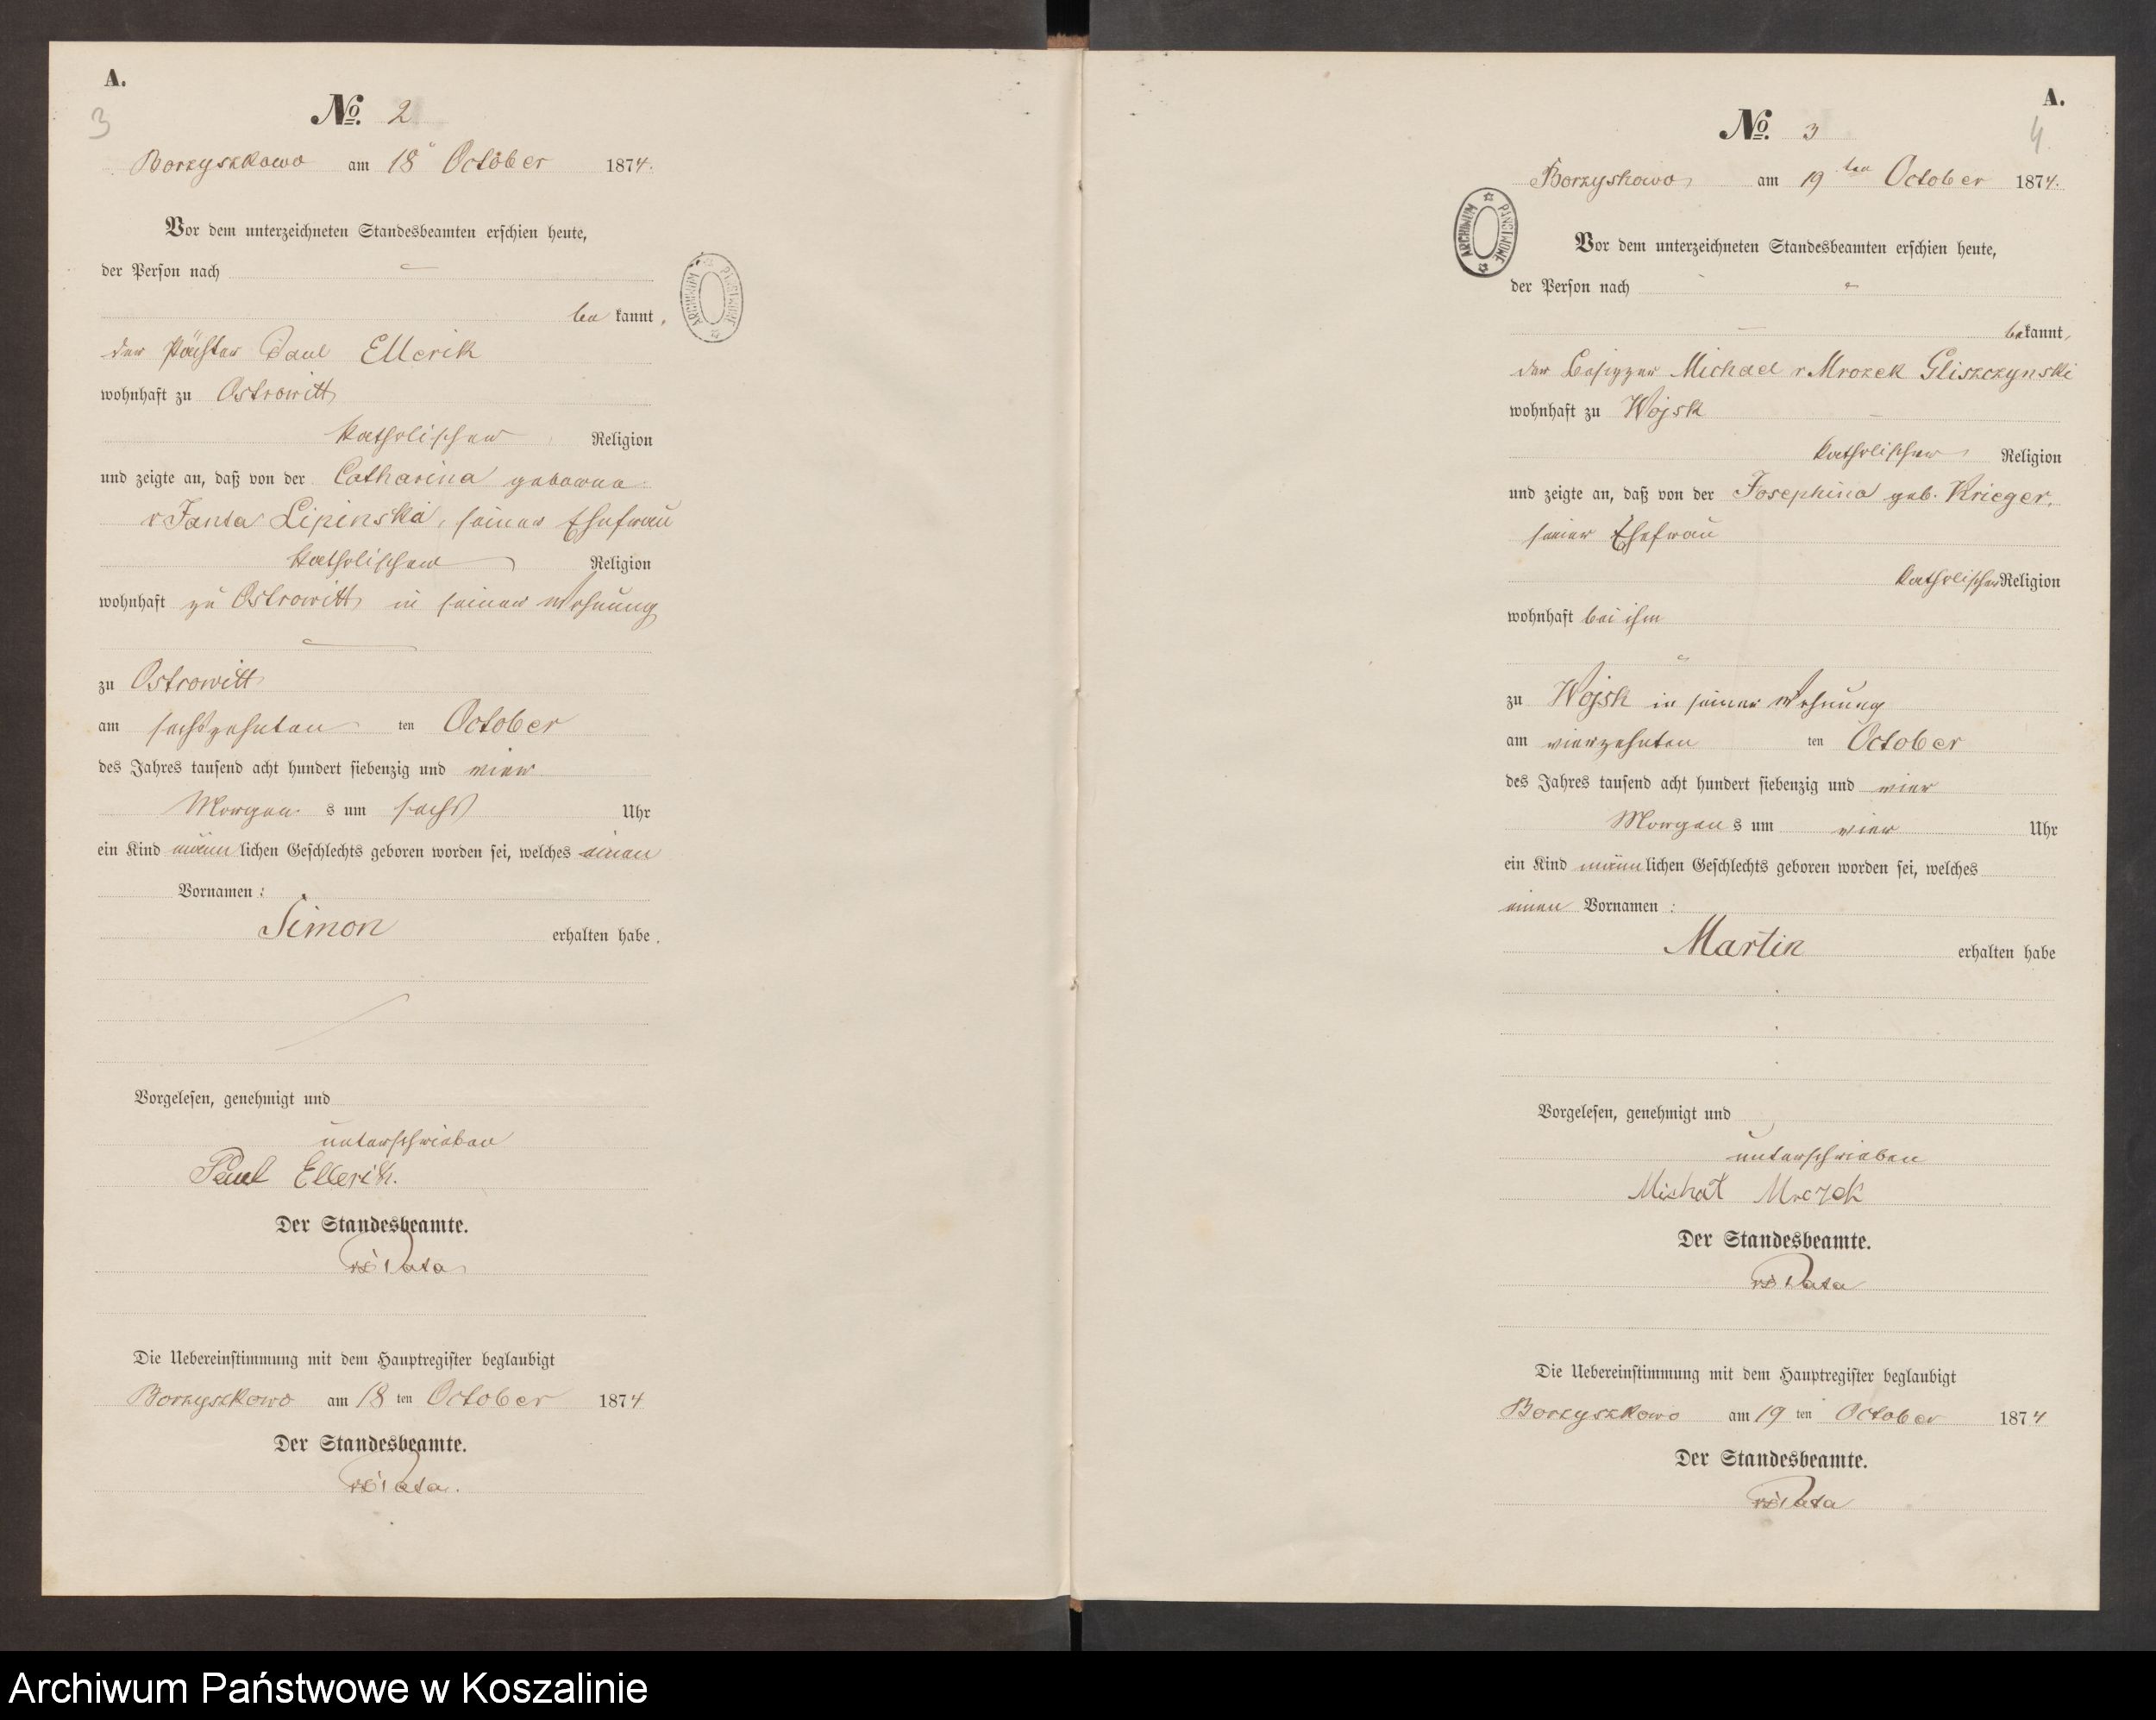 A.
3
No. 2
Borzyszkowo am 18 October 1874.
Vor dem unterzeichneten Standesbeamten erschien heute,
der Person nach
be kannt,
der Pächter Paul Ellerik
wohnhaft zu Ostrowitt
katholischer Religion
und zeigte an, daß von der Catharina geborene
v Janta Lipinska, seiner Ehefrau
katholischer Religion
wohnhaft zu Ostrowitt in seiner Wohnung
zu Ostrowitt
am sechszehnten ten October
des Jahres tausend acht hundert siebenzig und vier
Morgen s um sechs Uhr
ein Kind männlichen Geschlechts geboren worden sei, welches einen
Vornamen:
Simon erhalten habe.
Vorgelesen, genehmigt und
unterschrieben
Paul Ellerik.
Der Standesbeamte.
Die Uebereinstimmung mit dem Hauptregister beglaubigt
Borzyszkowo am 18 ten October 1874
Der Standesbeamte.
ARCHIWUM PAŃSTWOWE
A.
4
No. 3
Borzyskowo am 19 ten October 1874.
Vor dem unterzeichneten Standesbeamten erschien heute,
der Person nach
bekannt,
der Besitzer Michael v Mrozek Gliszczynski
wohnhaft zu Wojsk
katholischer Religion
und zeigte an, daß von der Josephina geb. Krieger,
seiner Ehefrau
katholischer Religion
wohnhaft bei ihm
zu Wojsk in seiner Wohnung
am vierzehnten ten October
des Jahres tausend acht hundert siebenzig und vier
Morgens um vier Uhr
ein Kind männlichen Geschlechts geboren worden sei, welches
einen Vornamen:
Martin erhalten habe
Vorgelesen, genehmigt und
unterschrieben
Michał Mrozek
Der Standesbeamte.
Die Uebereinstimmung mit dem Hauptregister beglaubigt
Borzyszkowo am 19 ten October 1874
Der Standesbeamte.
ARCHIWUM PAŃSTWOWE
Archiwum Państwowe w Koszalinie